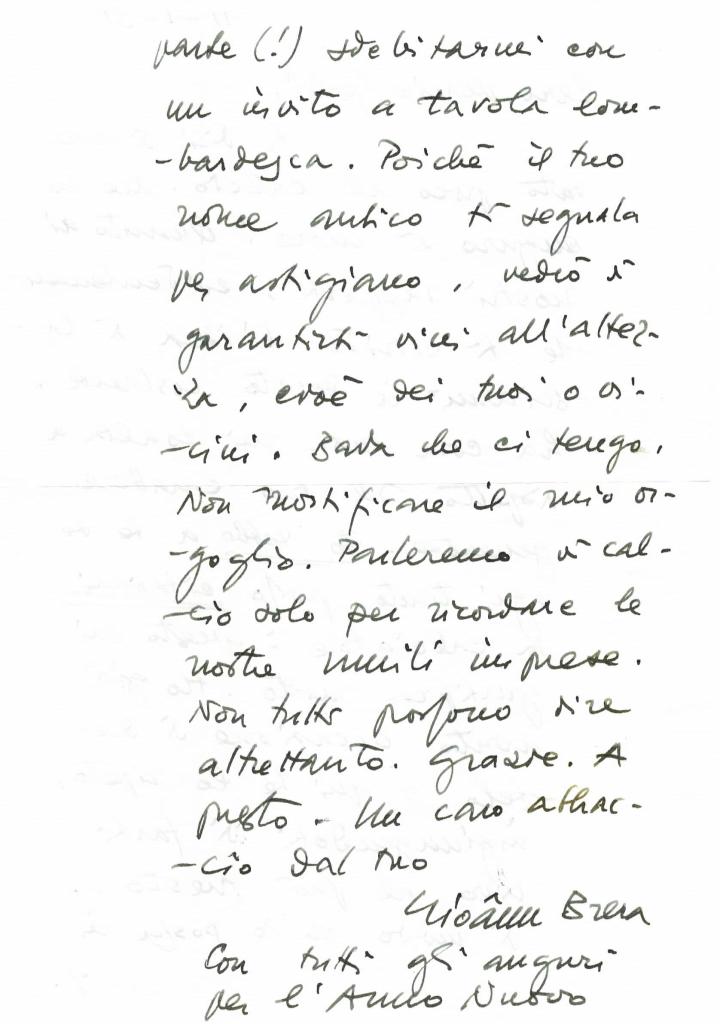 parte (!) sdebitarmi con
un invito a tavola lom-
-bardesca. Poiché il tuo
nome antico ti segnala
per astigiano, vedrò di
garantirti vini all'altez-
za, cioè dei tuoi o vi-
-cini. Bada che ci tengo.
Non mortificare il mio or-
-goglio. Parleremo di cal-
-cio solo per ricordare le
nostre umili imprese.
Non tutti possono dire
altrettanto. Grazie. A
presto - Un caro abbrac-
-cio dal tuo
Gioânn Brera
Con tutti gli auguri
per l'Anno Nuovo